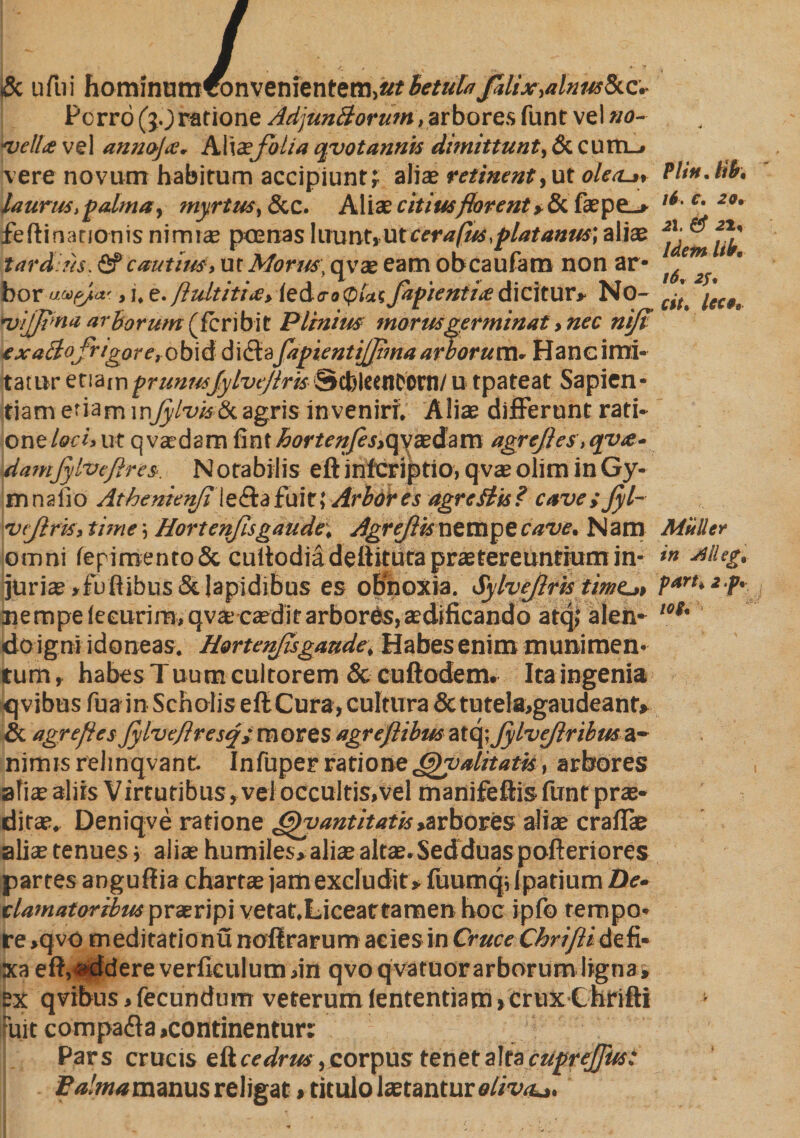 & uſui hominum convenientem,ut betula ſalix,alnus &c.
Porrò (3.) ratione Adjunctorum, arbores ſunt vel no-
vellæ vel annoſæ. Aliæ folia qvotannis dimittunt, & cum
vere novum habitum accipiunt; aliæ retinent, ut olea,
laurus, palma, myrtus, &c. Aliæ citius florent, & ſæpe
feſtinationis nimiæ pœnas luunt, ut ceraſus, platanus; aliæ
tardius. & cautius, ut Morus, qvæ eam ob cauſam non ar-
bor , i. e. ſtultitiæ, ſed σοφίας ſapientiæ dicitur. No-
viſſima arborum (ſcribit Plinius morus germinat, nec niſi
exacto frigore, ob id dicta ſapientiſſima arborum. Hanc imi-
tatur etiam prunus ſylveſtris Schleendorn/ u tpateat Sapien-
tiam etiam in ſylvis & agris inveniri. Aliæ differunt rati-
one loci, ut qvædam ſint hortenſes,qvædam agreſtes, qvæ-
dam ſylveſtres. Notabilis eſt inſcriptio, qvæ olim in Gy-
mnaſio Athenienſi lecta fuit; Arbores agreſtis? cave; ſyl-
veſtris, time; Hortenſis gaude. Agreſtis nempe cave. Nam
omni ſepimento & cuſtodiâ deſtituta prætereuntium in-
juriæ, fuſtibus & lapidibus es obnoxia. Sylveſtris time,
nempe ſecurim, qvæ cædit arbores, ædificando atq; alen-
do igni idoneas. Hortenſis gaude. Habes enim munimen-
tum, habes Tuum cultorem & cuſtodem. Ita ingenia
qvibus ſua in Scholis eſt Cura, cultura & tutela, gaudeant,
& agreſtes ſylveſtresq; mores agreſtibus atq; ſylveſtribus a-
nimis relinqvant. Inſuper ratione Qvalitatis, arbores
aliæ aliis Virtutibus, vel occultis, vel manifeſtis ſunt præ-
ditæ. Deniqve ratione Qvantitatis, arbores aliæ craſſæ
aliæ tenues; aliæ humiles, aliæ altæ. Sed duas poſteriores
partes anguſtia chartæ jam excludit, ſuumq; ſpatium De-
clamatoribus præripi vetat. Liceat tamen hoc ipſo tempo-
re, qvo meditationū noſtrarum acies in Cruce Chriſti defi-
xa eſt, addere verſiculum, in qvo qvatuor arborum ligna,
ex qvibus, ſecundum veterum ſententiam, crux Chriſti
fuit compacta, continentur:
Pars crucis eſt cedrus, corpus tenet alta cupreſſus:
Palma manus religat, titulo lætantur oliva.
Plin. lib.
16. c. 20.
21. & 22.
Idem lib.
16. 25.
cit. loco.
Müller
in Alleg.
part. 2. p.
108.